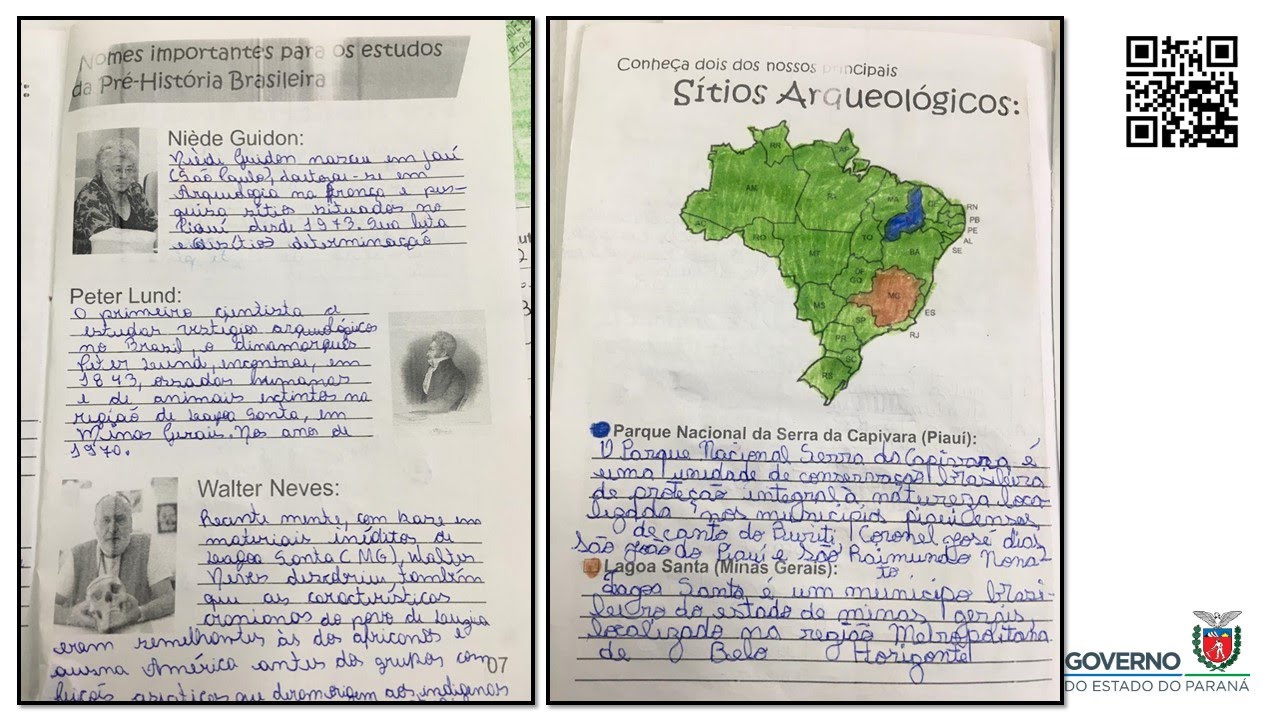 Nomes importantes para os estudos
da Pré-História Brasileira
Niède Guidon:
Niède Guidon nasceu em Jaú
(São Paulo), doutorou-se em
Arqueologia na França e pes-
quisa sítios situados no
Piauí desde 1973. Sua luta
e determinação
Peter Lund:
O primeiro cientista a
estudar vestígios arqueológicos
no Brasil, o dinamarquês
Peter Lund, encontrou, em
1843, ossadas humanas
e de animais extintos na
região de Lagoa Santa, em
Minas Gerais. Nos anos de
1970.
Walter Neves:
Recente mente, com base em
materiais inéditos de
Lagoa Santa (MG), Walter
Neves descobriu, também
que as características
cranianas do povo de Luzia
eram semelhantes às dos africanos e
América antes dos grupos com
asiáticos que deram origem aos indígenas
07
Conheça dois dos nossos principais
Sítios Arqueológicos:
RR
AP
AM
PA
MA
CE
RN
PB
PE
AL
SE
RO
TO
MT
BA
DF
GO
MG
MS
ES
SP
RJ
PR
SC
RS
Parque Nacional da Serra da Capivara (Piauí):
O Parque Nacional Serra da Capivara é
uma unidade de conservação brasileira
de proteção integral à natureza loca-
lizada nos municípios piauienses
de canto do Buriti, Coronel José dias
São João do Piauí e São Raimundo Nona-
to
Lagoa Santa (Minas Gerais):
Lagoa Santa é um município brasi-
leiro do estado de minas gerais
localizado na região Metropolitana
de Belo Horizonte
GOVERNO
DO ESTADO DO PARANÁ